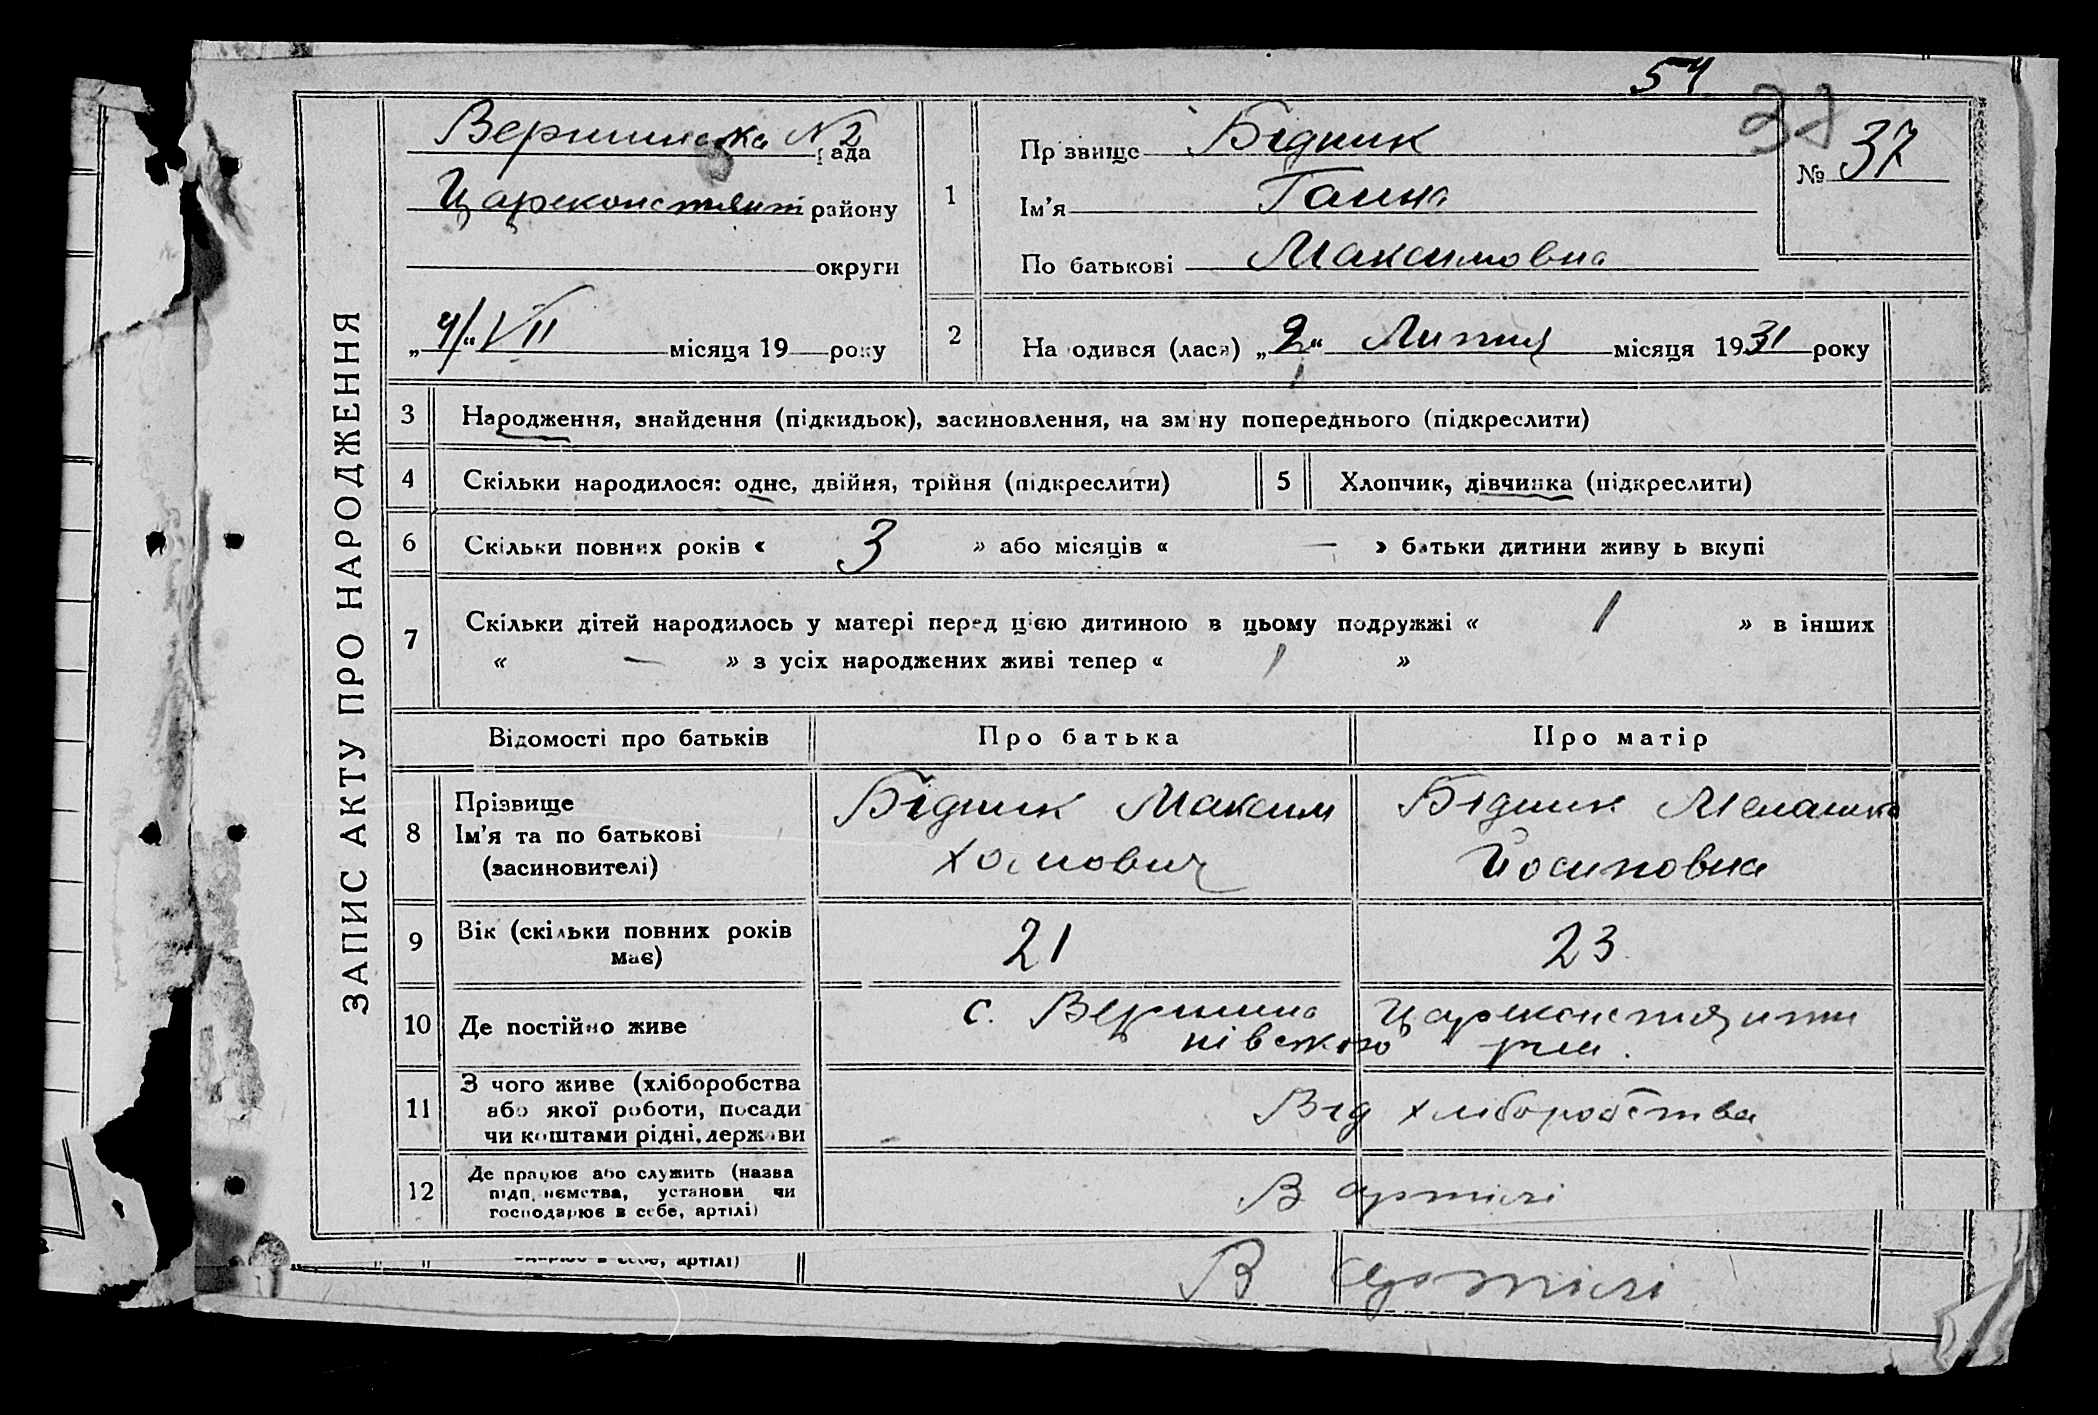 54
37
ЗАПИС АКТУ ПРО НАРОДЖЕННЯ
Вершинська №2 рада
Цареконстянт району
округи
„4/“ VII місяця 19 року
1
Прізвище Бідник
Ім'я Ганна
По батькові Максимовна
№ 37
2
Народився (лася) „2“ Липня місяця 1931 року
3 Народження, знайдення (підкидьок), засиновлення, на зміну попереднього (підкреслити)
4 Скільки народилося: одне, двійня, трійня (підкреслити)
5 Хлопчик, дівчинка (підкреслити)
6 Скільки повних років « 3 » або місяців « — » батьки дитини живуть вкупі
7 Скільки дітей народилось у матері перед цією дитиною в цьому подружжі « 1 » в інших
« — » з усіх народжених живі тепер « 1 »
Відомості про батьків Про батька Про матір
8 Прізвище
Ім'я та по батькові
(засиновителі)
Бідник Максим
Хомович
Бідник Меланка
Йосиповна
9 Вік (скільки повних років
має)
21 23
10 Де постійно живе
с. Вершина Цареконстянти
нівського р-ну.
11 З чого живе (хліборобства
або якої роботи, посади
чи коштами рідні, держави
Від хліборобства
12 Де працює або служить (назва
підприємства, установи чи
господарює в себе, артілі)
В артілі
господарює в себе, артілі)
В артілі